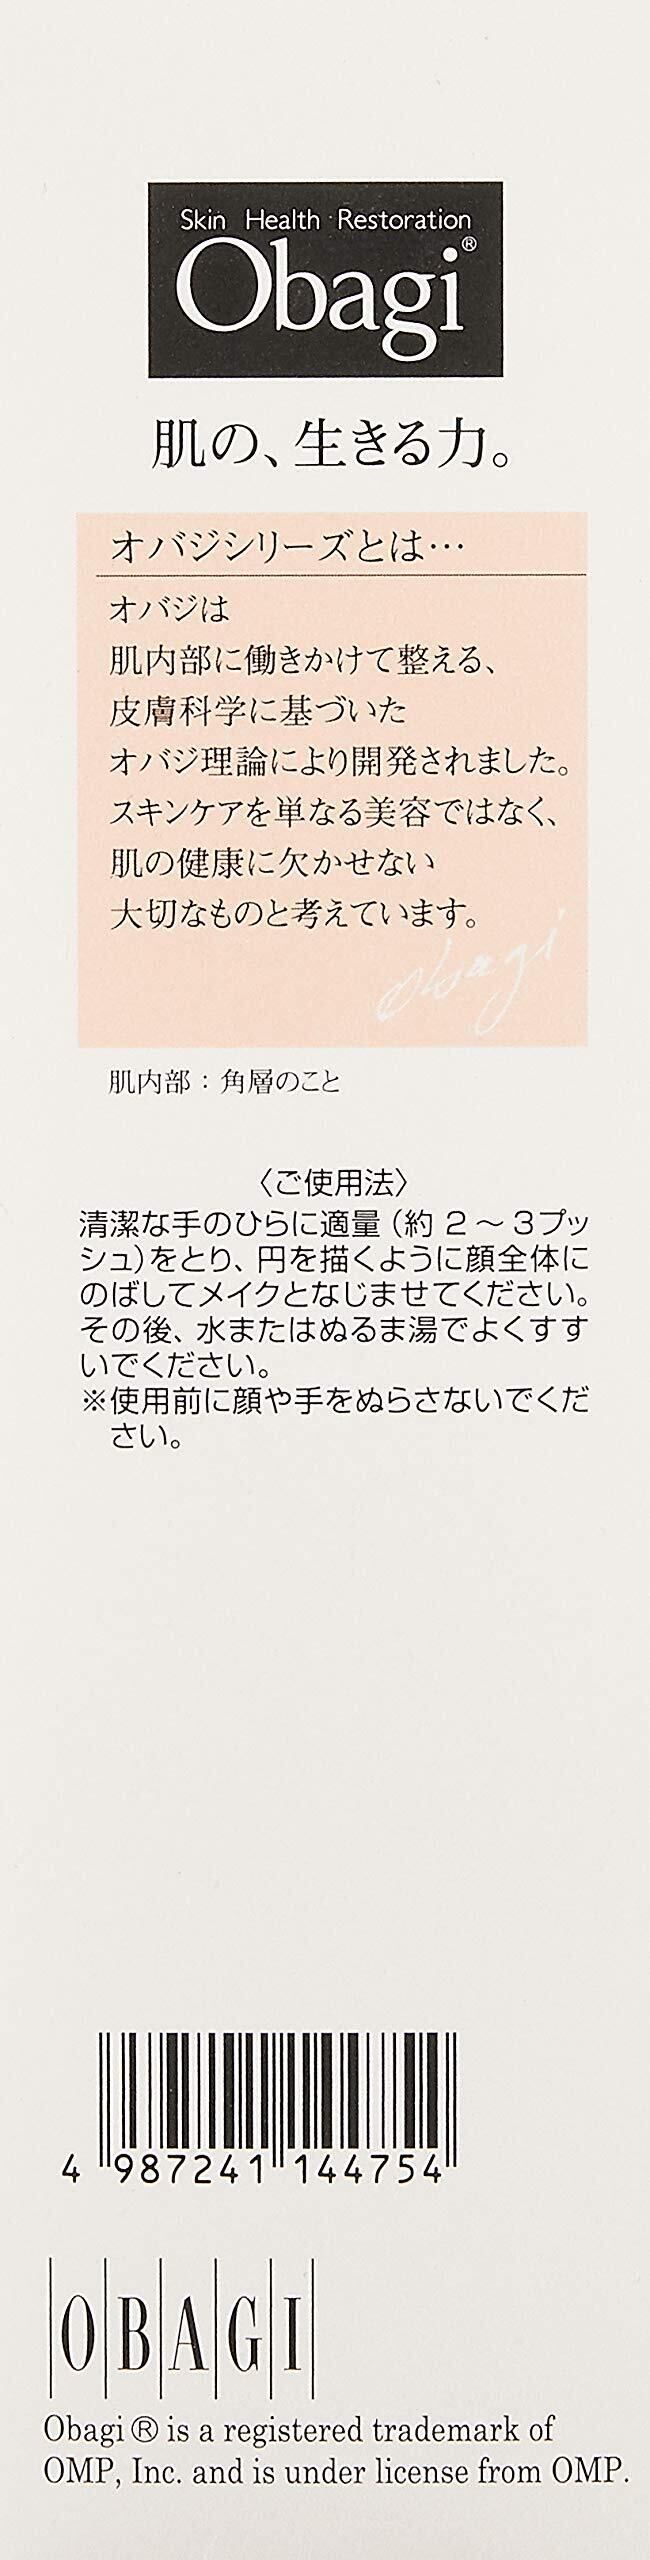 Skin Health Restoration
Obagi®
肌の、生きる力。
オバジシリーズとは…
オバジは
肌内部に働きかけて整える、
皮膚科学に基づいた
オバジ理論により開発されました。
スキンケアを単なる美容ではなく、
肌の健康に欠かせない
大切なものと考えています。
Obagi
肌内部：角層のこと
〈ご使用法〉
清潔な手のひらに適量（約 2 〜 3プッ
シュ）をとり、円を描くように顔全体に
のばしてメイクとなじませてください。
その後、水またはぬるま湯でよくすす
いでください。
※使用前に顔や手をぬらさないでくだ
さい。
4 987241 144754
OBAGI
Obagi ® is a registered trademark of
OMP, Inc. and is under license from OMP.